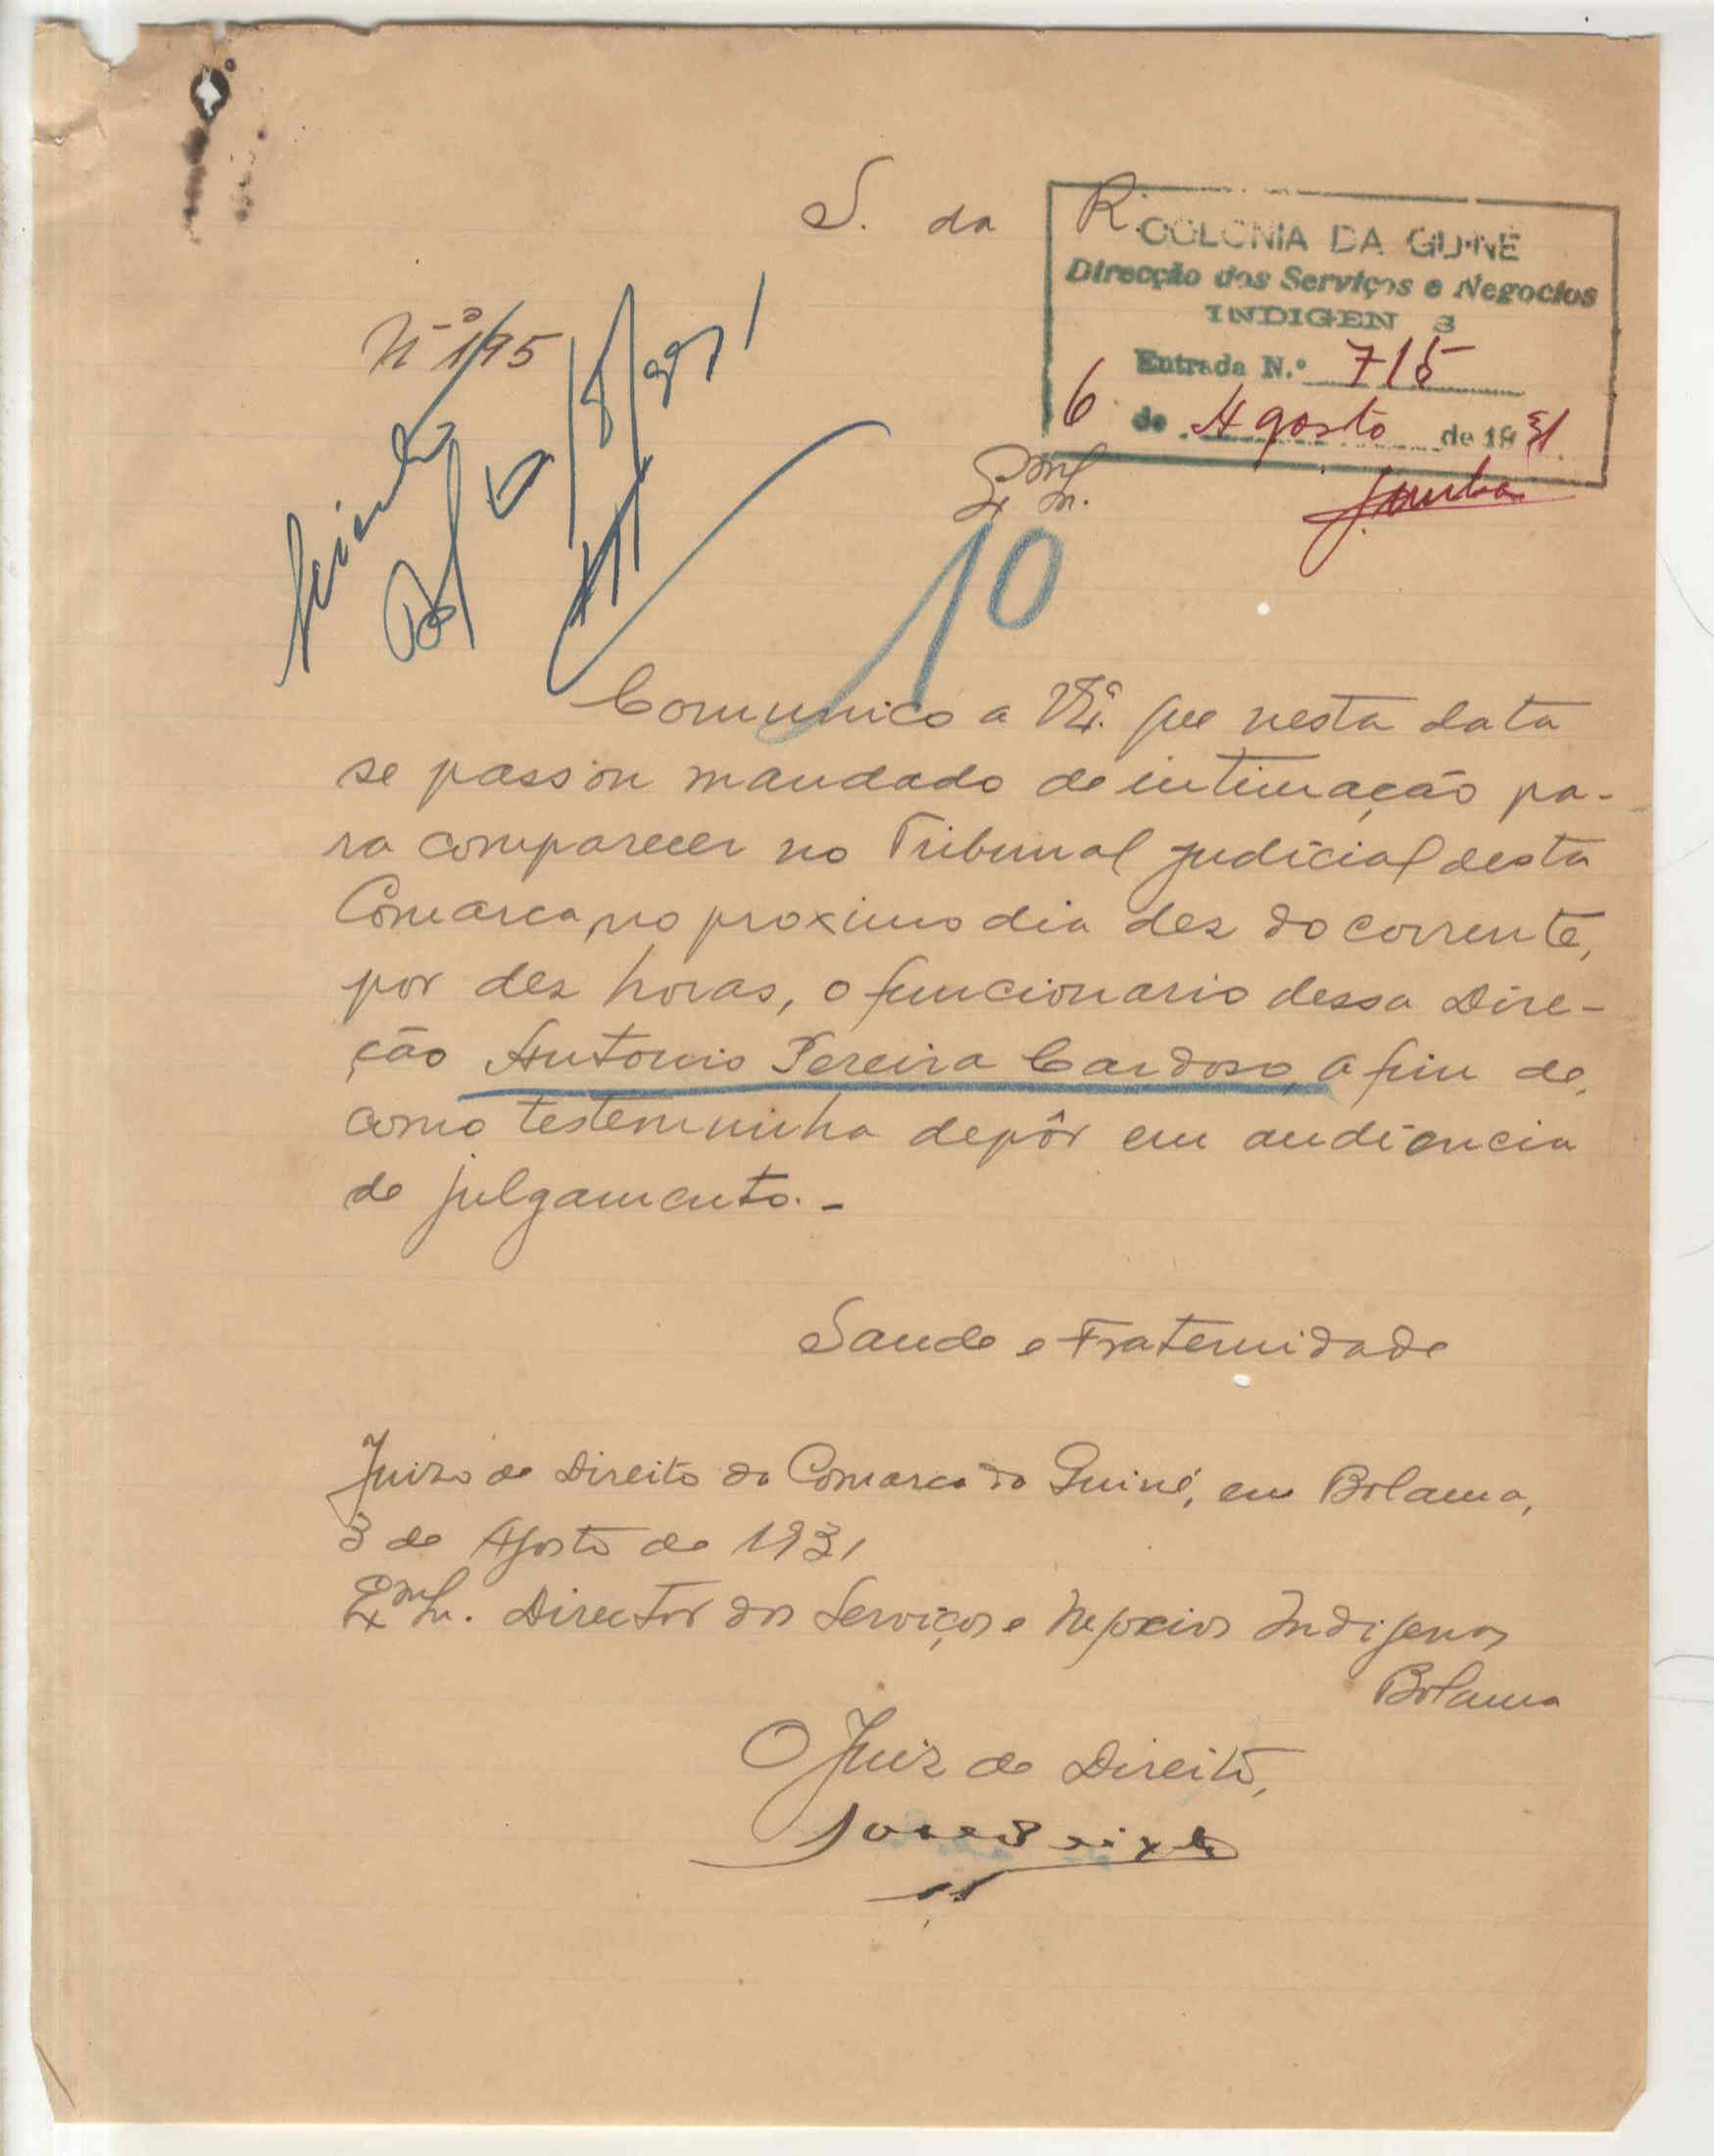 S. da R.
COLONIA DA GUINÉ
Direcção dos Serviços e Negocios
INDIGENAS
Entrada N.º 715
6 de Agosto de 1931
Nº 195
6/8/931
Exmº Sr.
10
Comunico a V. Exª. que nesta data
se passou mandado de intimação pa-
ra comparecer no Tribunal judicial desta
Comarca, no proximo dia dez do corrente,
por dez horas, o funcionario dessa Dire-
ção Antonio Pereira Cardoso, a fim de,
como testemunha depôr em audiencia
de julgamento.-
Saude e Fraternidade
Juizo de Direito da Comarca da Guiné, em Bolama,
3 de Agosto de 1931
Exmº Sr. Director dos Serviços e Negocios Indigenas
Bolama
O Juiz de Direito,